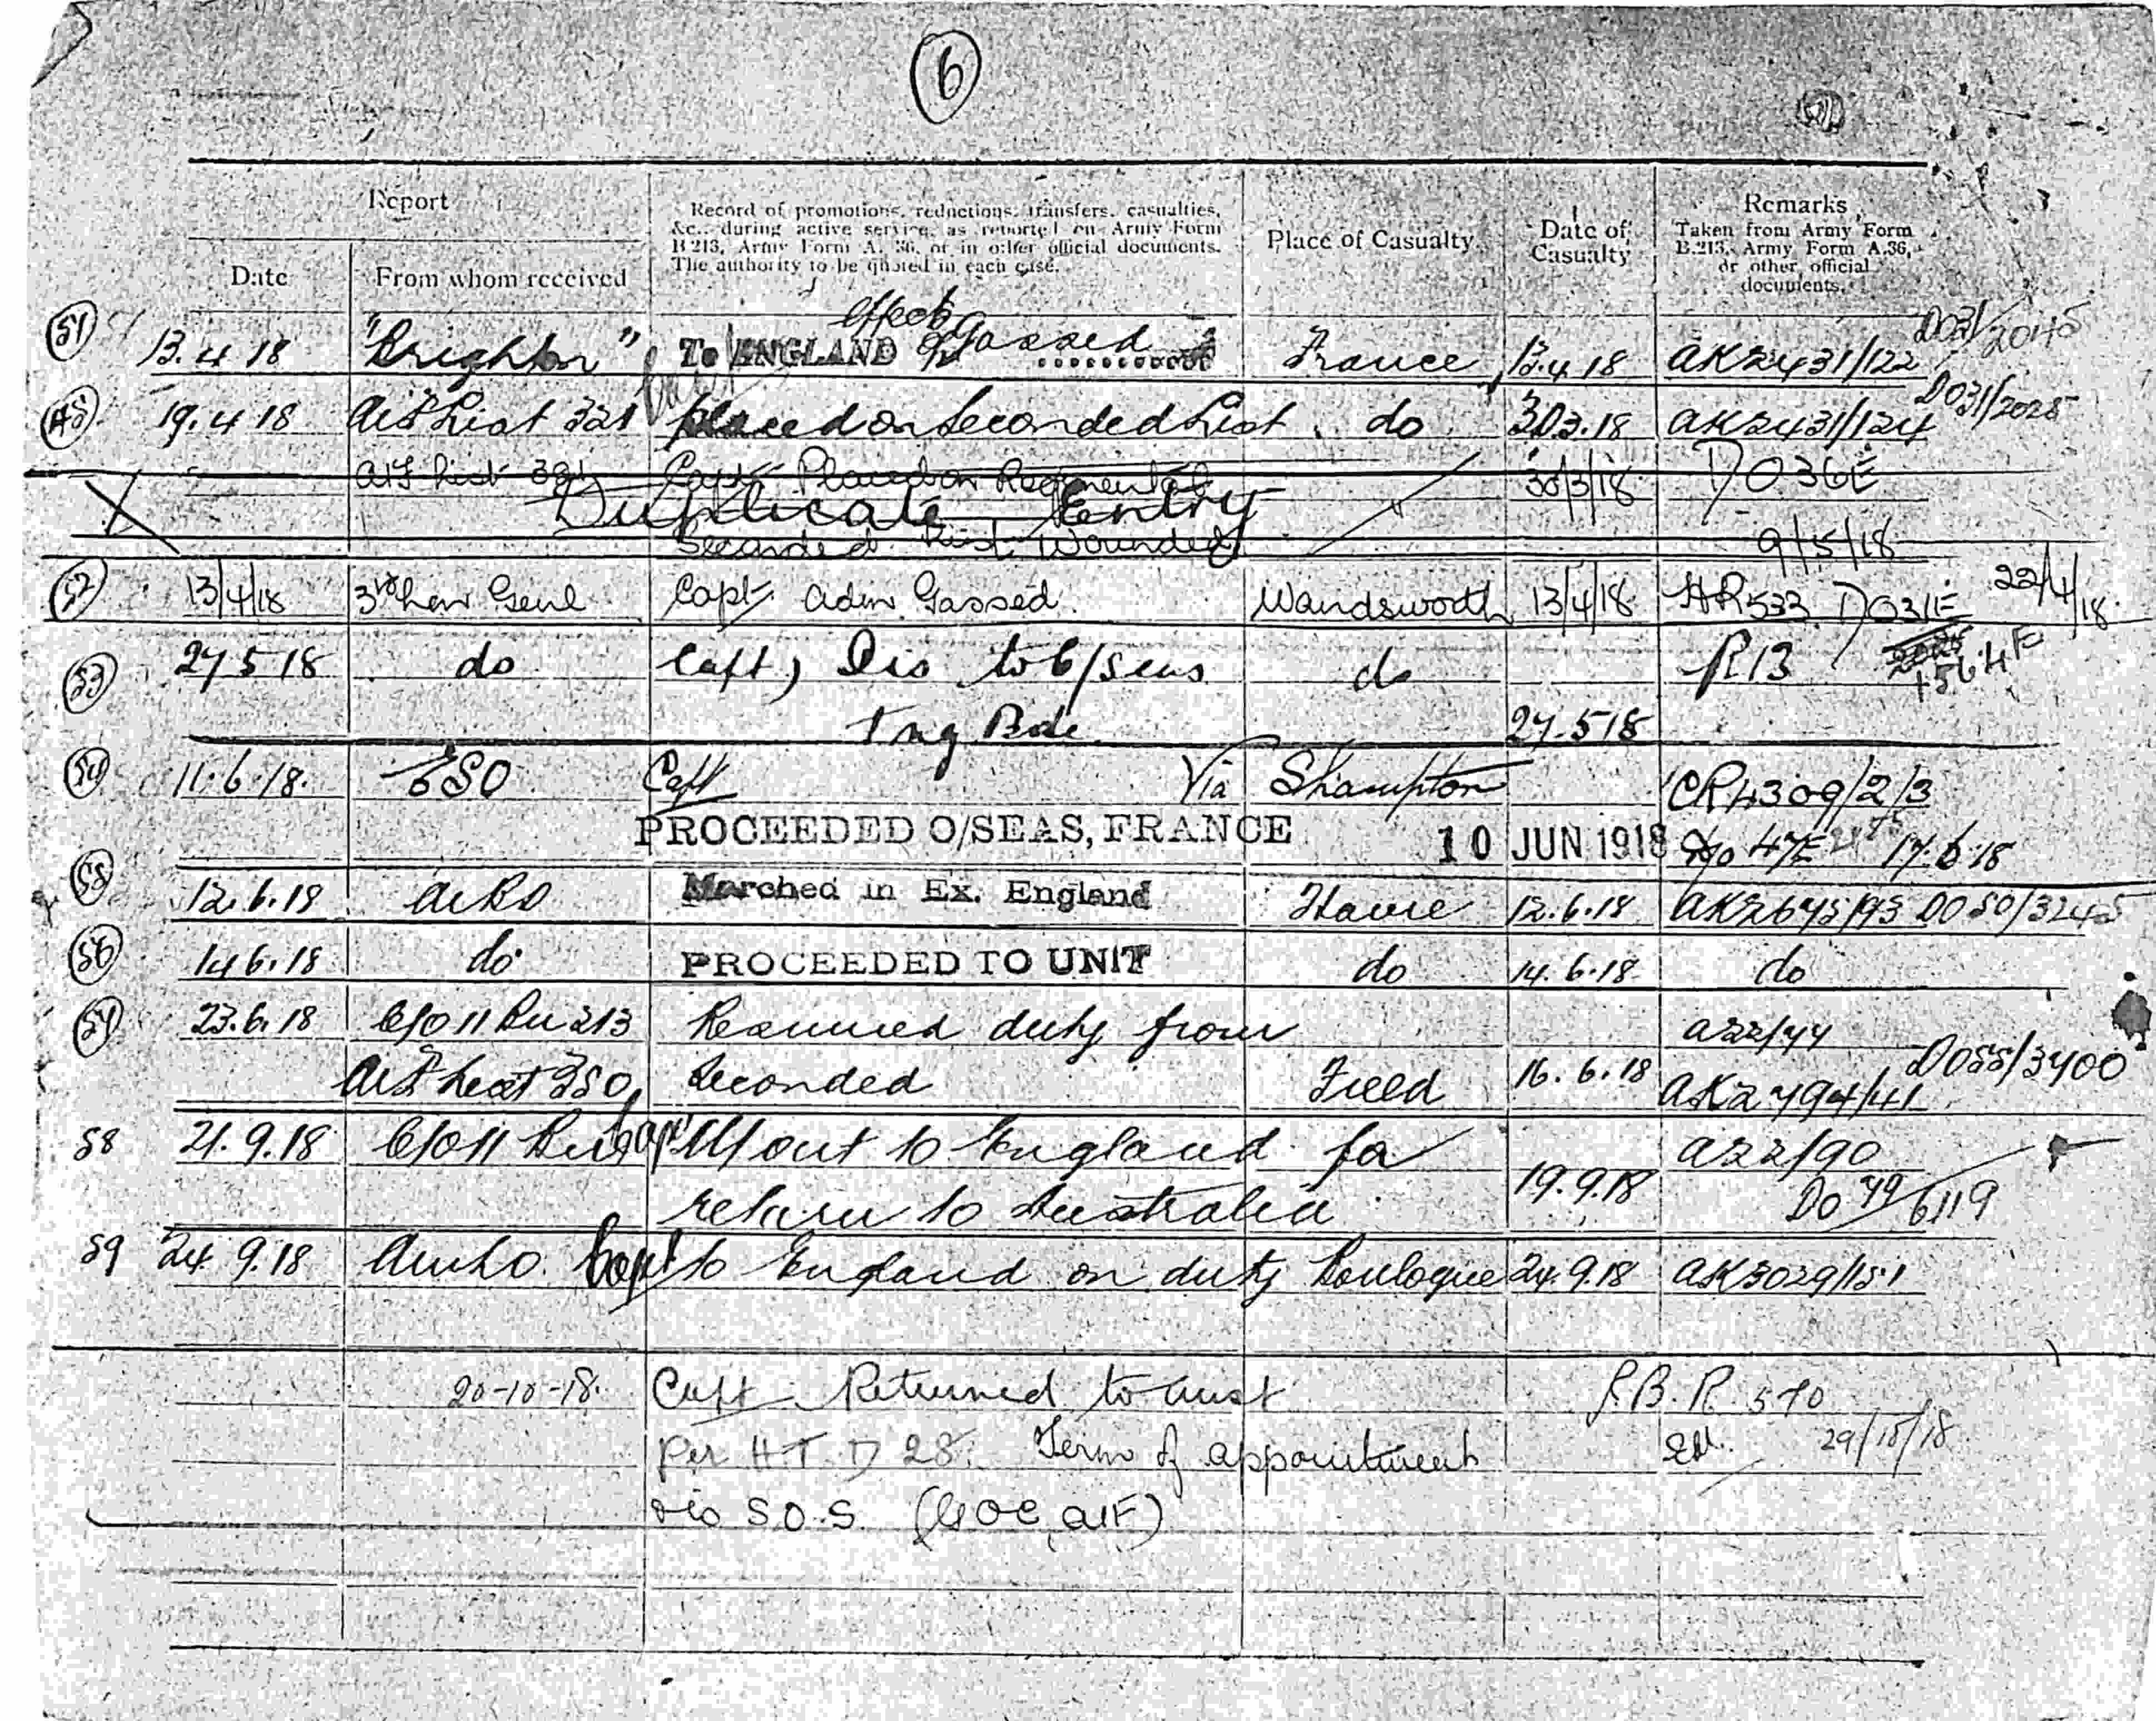 6
Report
Record of promotions, reductions, transfers, casualties,
&c., during active service, as reported on Army Form
B 213, Army Form A. 36, or in other official documents.
The authority to be quoted in each case.
Place of Casualty
Date of
Casualty
Remarks
Taken from Army Form
B.213, Army Form A.36,
or other official
documents.
Date
From whom received
effects
51 13.4.18 "Brighton" To ENGLAND Gassed France 13.4.18 AK2431/122 DO31/2045
48 19.4.18 AIF List 321 placed on Seconded List do 30.3.18 AK2431/124 DO31/2025
AIF List 321 Capt Placed on Regimental 30/3/18 DO36E
Duplicate Entry
Seconded List Wounded 9/5/18
52 13/4/18 3rd Lon Genl Capt adm Gassed. Wandsworth 13/4/18 HR533 DO31E 22/4/18
53 27 5 18 do Capt, Dis to O/Seas do R13 1564E
Tng Bde 27.5 18
54 11.6.18. Capt Via S'hampton CR4309/2/3
PROCEEDED O/SEAS, FRANCE 10 JUN 1918 47E 17.6.18
55 12.6.18 Marched in Ex. England Havre 12.6.18 AK2675/93 DO50/3245
56 14.6.18 do PROCEEDED TO UNIT do 14.6.18 do
57 23.6.18 C/O 11 Bn 213 Resumed duty from A22/77
AIF List 350 Seconded Field 16.6.18 AK2794/41 DO55/3400
58 21.9.18 C/O 11 Bn Capt M/out to England for A22/90
return to Australia 19.9.18 DO 79/6119
59 24.9.18 Capt to England on duty Boulogne 24.9.18 AK3029/151
20-10-18. Capt Returned to Aust J.B.R. 570
per H.T. D 28. Term of appointment 29/10/18
S.O.S. (GOC, AIF)